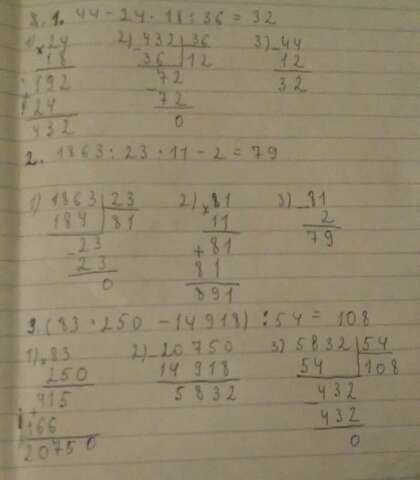 8. 1. 44 - 24 · 18 : 36 = 32
1) × 24 2) - 432 | 36 3) - 44
18 36 | 12 12
+ 192 72 32
24 - 72
432 0
2. 1863 : 23 · 11 - 2 = 79
1) 1863 | 23 2) × 81 3) - 81
184 | 81 11 2
- 23 + 81 79
23 81
0 891
3. (83 · 250 - 14918) : 54 = 108
1) × 83 2) - 20750 3) 5832 | 54
250 14918 54 | 108
+ 415 5832 - 432
166 432
20750 0